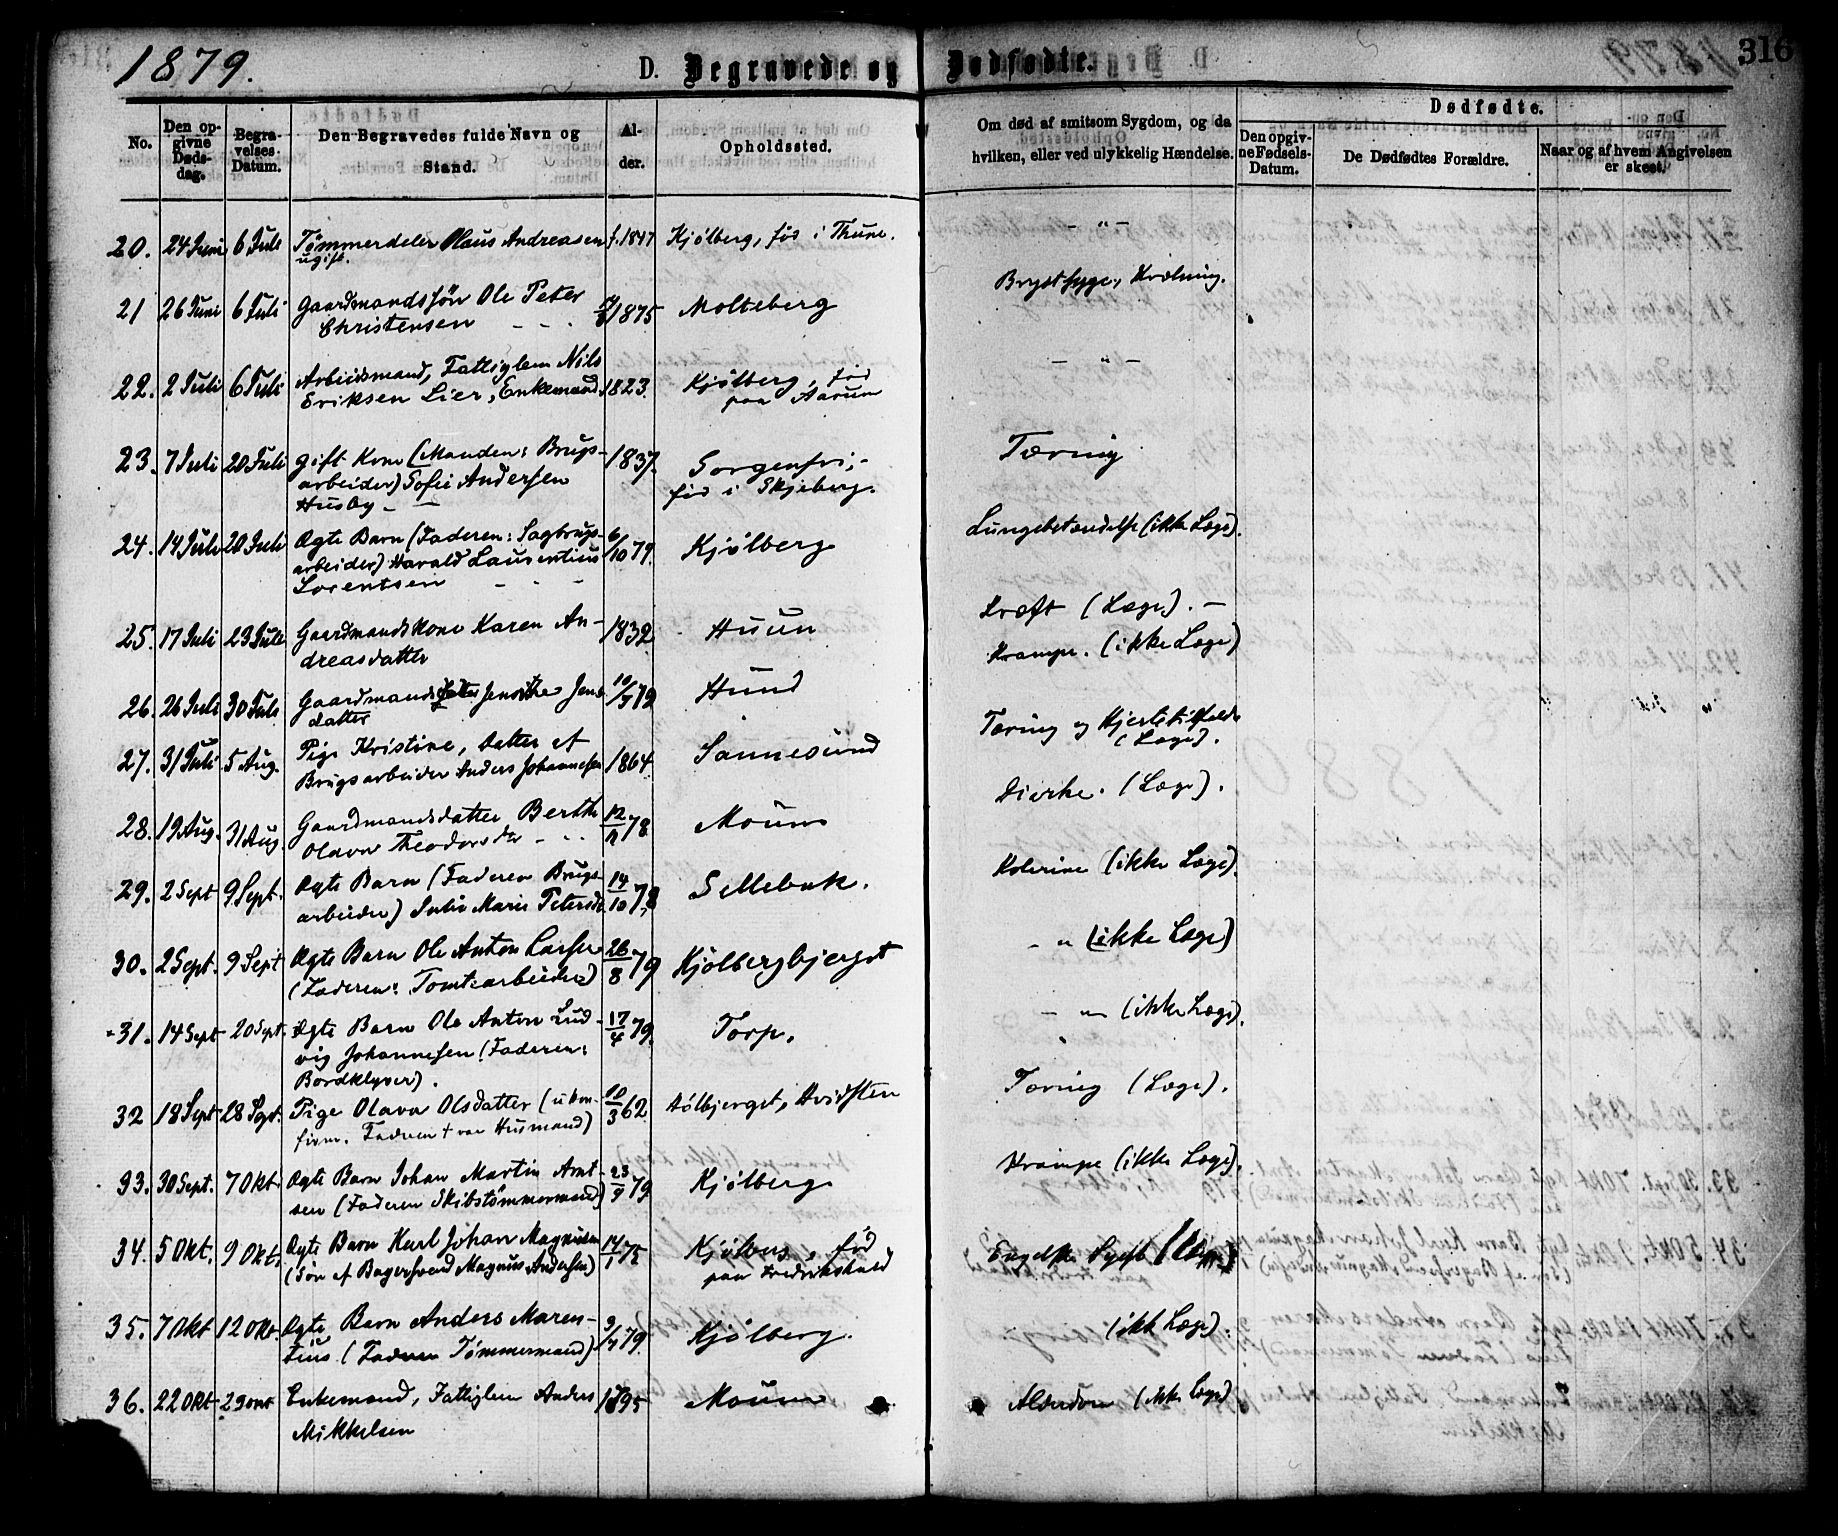 1879.
D. Begravede og Dødfødte.
316
No.
Den op-
givne
Døds-
dag.
Begra-
velses-
Datum.
Den Begravedes fulde Navn og
Stand.
Al-
der.
Opholdssted.
Om død af smitsom Sygdom, og da
hvilken, eller ved ulykkelig Hændelse.
Dødfødte.
Den opgiv-
ne Fødsels-
Datum.
De Dødfødtes Forældre.
Naar og af hvem Angivelsen
er skeet.
20. 24 Juni 6 Juli Tømmerdeler Olaus Andreasen f. 1847 Kjølberg, fød i Thune. - " -
ugift.
21 26 Juni 6 Juli Gaardmandssøn Ole Peter 1875 Molteberg Brystsyge,
Christensen
22. 2 Juli 6 Juli Arbeidsmand, Fattiglem Nils 1823. Kjølberg, fød - " -
Eriksen Lier, Enkemand paa Aarum
23. 7 Juli 20 Juli gift Kone (Manden: Brugs- 1837. Sorgenfri, Tæring
arbeider) Sofie Andersen fød i Skjeberg.
Husby
24. 14 Juli 20 Juli Ægte Barn (Faderen: Sagbrugs- 6/10 79. Kjølberg Lungebetændelse (ikke Læge).
arbeider) Harald Laurentius
Lorentsen
25. 17 Juli 23 Juli Gaardmandskone Karen An- 1832 Huun Kræft (Læge). -
dreasdatter
26. 26 Juli 30 Juli Gaardmands Jens- 79 Hund Krampe. (ikke Læge)
datter
27. 31 Juli 5 Aug. Pige Kristine, datter af 1864. Sannesund Tæring og
Brugsarbeider Anders Johannesen (Læge).
28. 19 Aug. 31 Aug. Gaardmandsdatter Berthe 78 Moum Diarhe. (Læge).
Olava Theodorsdtr
29. 2 Sept 9 Sept. Ægte Barn (Faderen Brugs- 14/10 78 Sellebak. Kolerine (ikke Læge).
arbeider) Julie Marie Petersdt
30. 2 Sept. 9 Sept Ægte Barn Ole Anton Larsen 26/8 79 Kjølbergbjerget - " (ikke Læge)
(Faderen: Tomtearbeider)
31. 14 Sept 20 Sept. Ægte Barn Ole Anton Lud- 17/4 79. Torp. - " - (ikke Læge).
vig Johannesen (Faderen:
Bordklyver).
32 18 Sept 28 Sept. Pige Olava Olsdatter (ukon- 10/3 62 Hvidsten Tæring (Læge).
firm. Faderen + var Husmand)
33. 30 Sept. 7 Okt Ægte Barn Johan Martin Arnt- 79 Kjølberg Krampe (ikke Læge).
sen (Faderen Skibstømmermand)
34. 5 Okt. 9 Okt. Ægte Barn Karl Johan Magnussen 14/1 75 fød Engelsk Syge (Læge)
(Søn af Bagersvend Magnus Andersen) paa Fredrikshald
35. 7 Okt 12 Okt. Ægte Barn Anders Maren- 79. Kjølberg. (ikke Læge).
tius (Faderen Tømmermand)
36. 22 Okt 29 Okt Enkemand, Fattiglem Anders 1795 Moum Alderdom (ikke Læge)
Mikkelsen